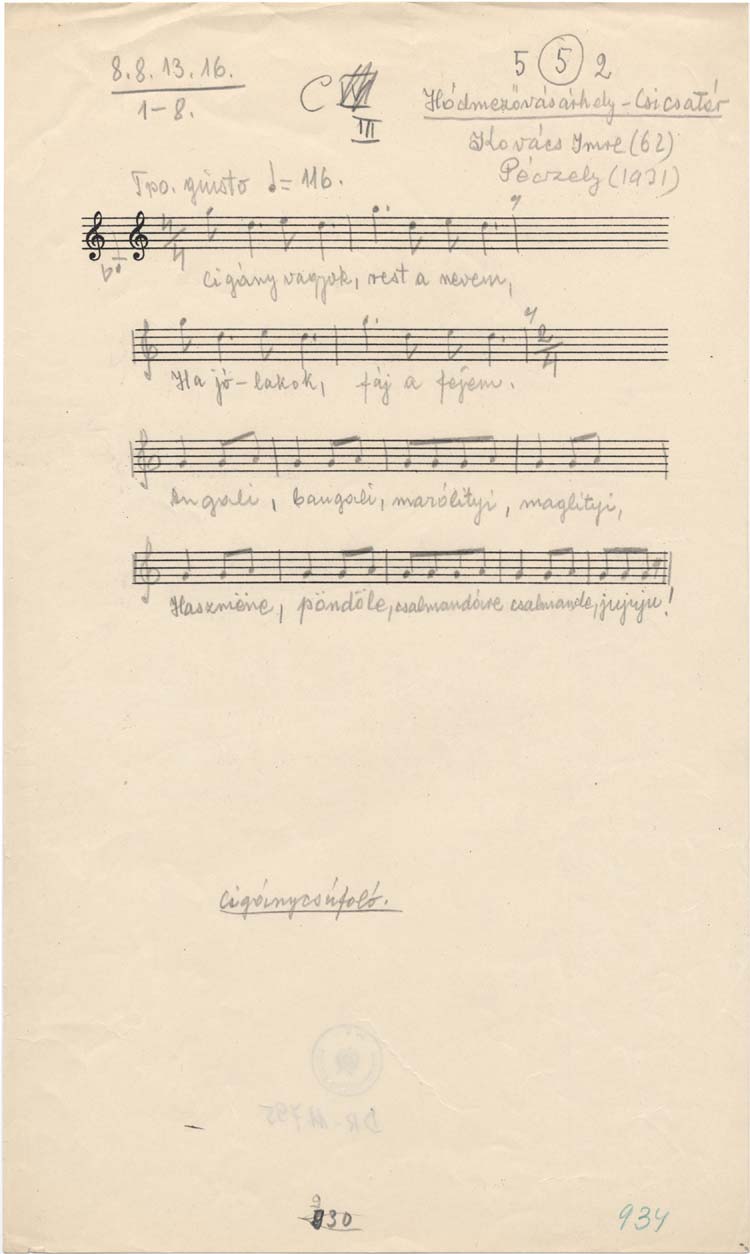 8.8.13.16.
1-8.
C III
5 5 2
Hódmezővásárhely-Csicsatér
Kovács Imre (62)
Péczely (1931)
Tpo. giusto ♩= 116.
4/4
Cigány vagyok, rest a nevem,
2/4
Ha jó-lakok, fáj a fejem.
Ungali, baugali, marólityi, maglityi,
Haszmëne, pöndöle, csalmandóire csalmande, jujuju!
Cigánycsúfoló.
930
934